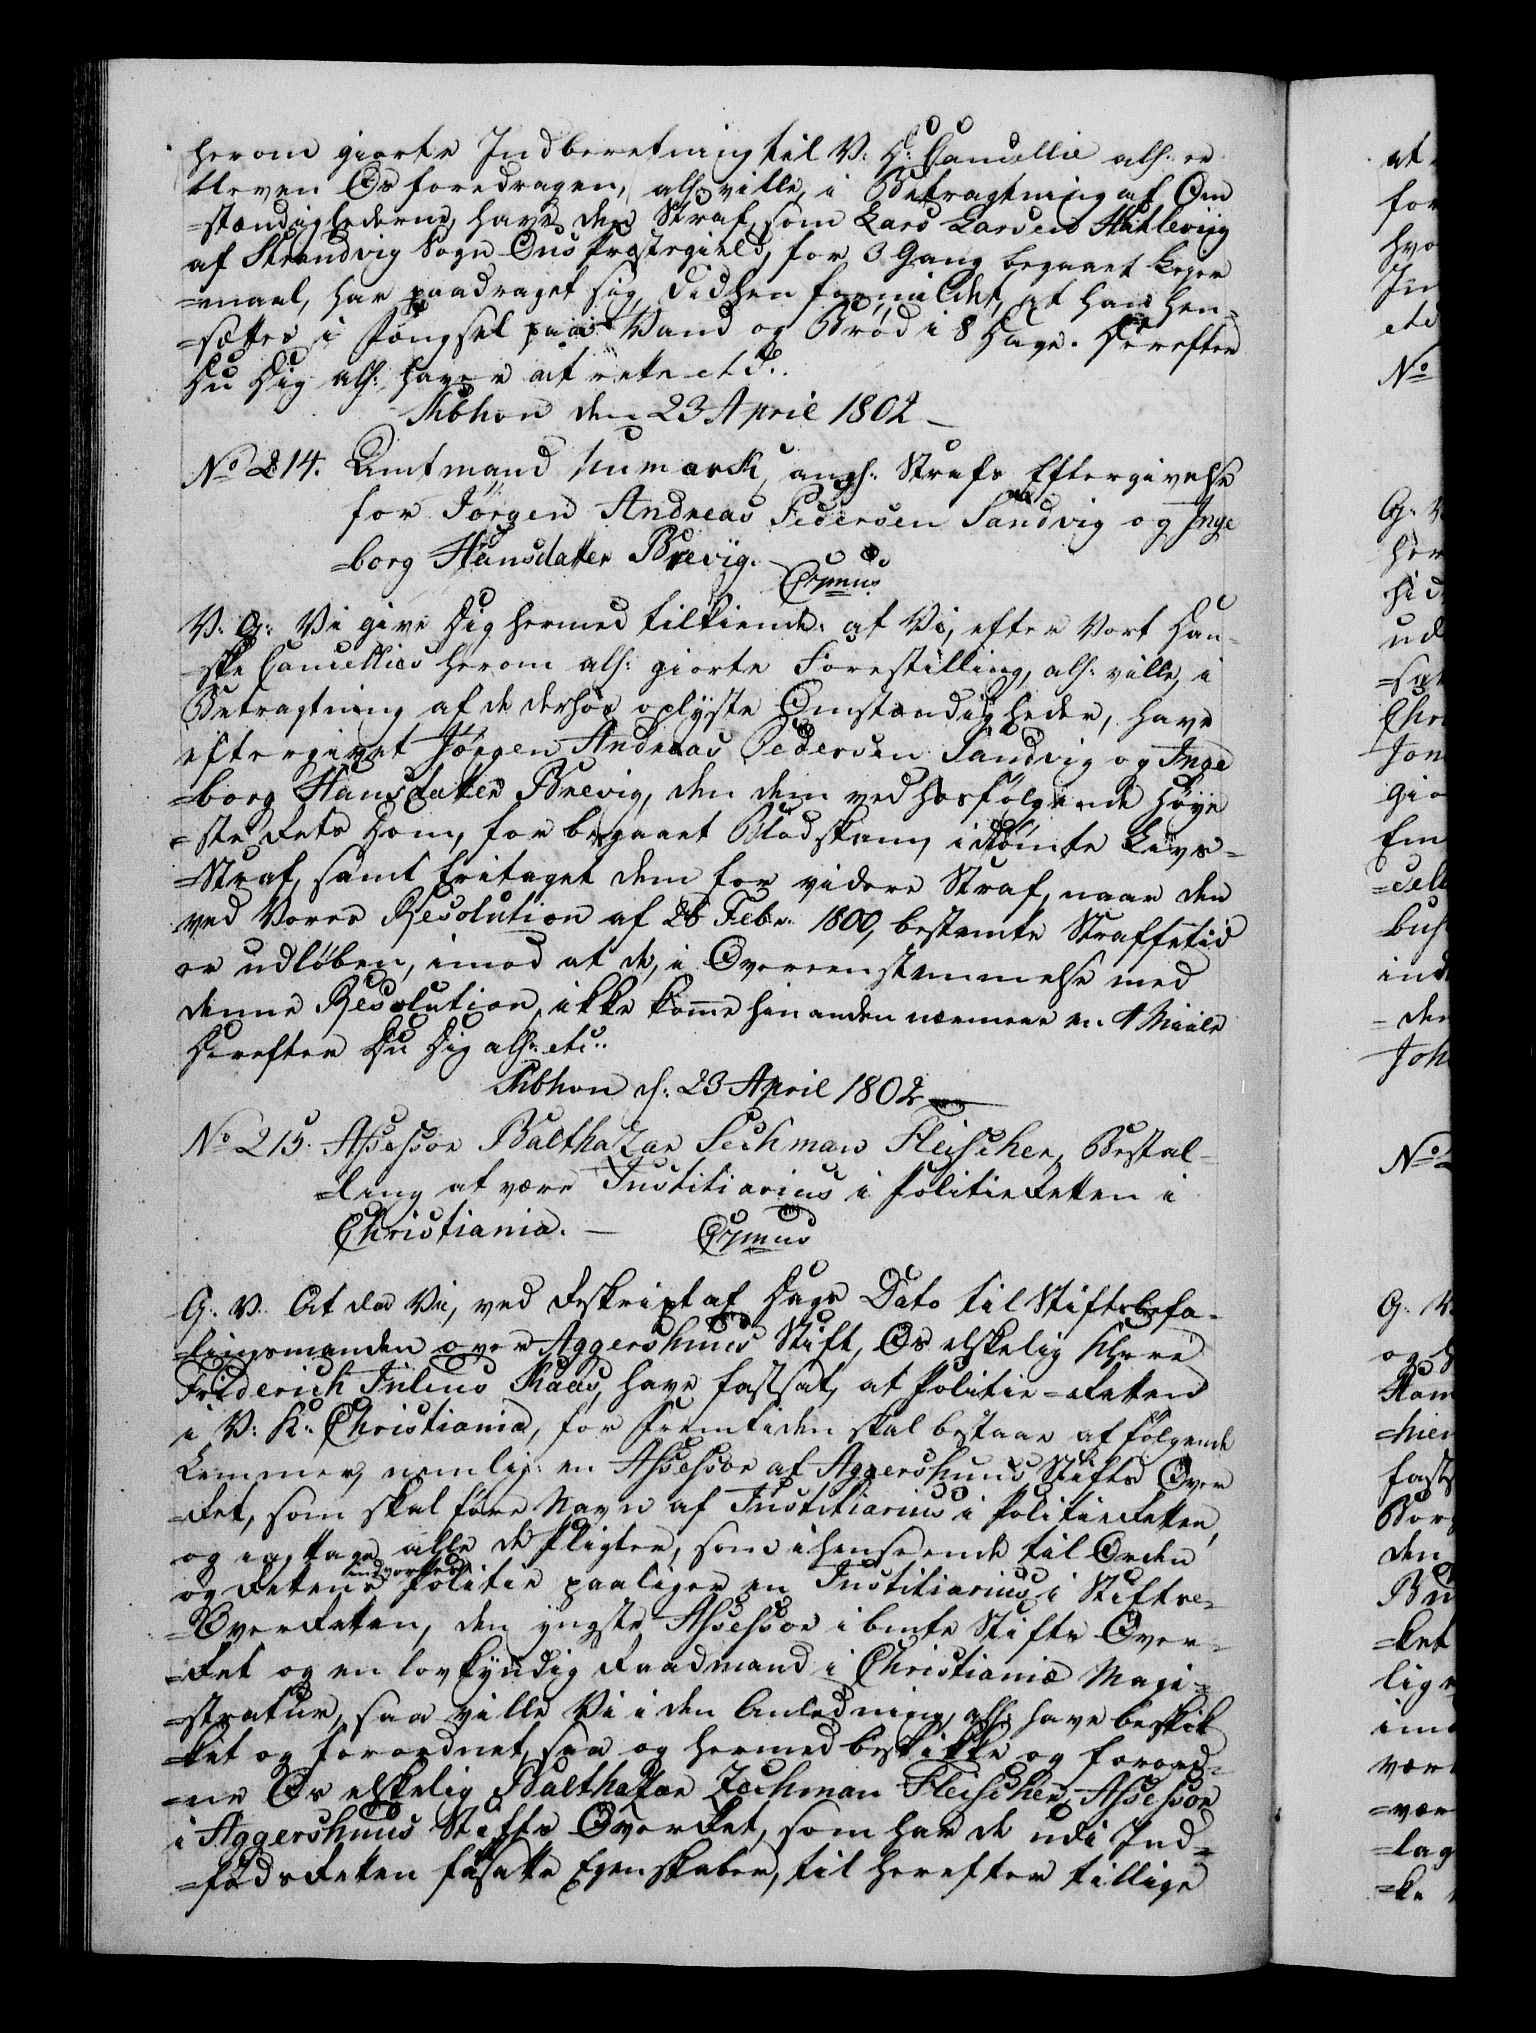 herom giorte Indberetning til V: D: Cancellie alh: er
bleven Os foredragen, alh: ville, i Betragtning af Om
=stændighederne, have den Straf, som Lars Larsens Hatlevig
af Strandvig Sogn Ous Præstegield, for 3 Gang begaaet Leyer
=maal, har paadraget sig, didhen formildet, at han hen-
=sættes i Fængsel paa Vand og Brød i 8 Dage. Derefter
Du Dig alh: haver at rette etc:.
Kbhvn den 23 April 1802
No 214. Amtmand Numark, angh: Strafs Eftergivelse
for Jørgen Andreas Pedersen Sandvig og Inge
=borg Hansdatter Brevig.
V: G: Vi give Dig hermed tilkiende: at Vi, efter Vort Dan-
ske Cancellies herom alh: giorte Forestilling, alh: ville, i
Betragtning af de derhos oplyste Omstændigheder, have
eftergivet Jørgen Andreas Pedersen Sandvig og Inge
=borg Hansdatter Brevig, den dem ved hosfølgende Høye
=ste Rets Dom, for begaaet Blodskam, idømte Livs-
=Straf, samt fritaget dem for videre Straf, naar den
ved Vores Resolution af 28 Febr: 1800, bestemte Straffetid
er udløben, imod at de, i Overeenstemmelse med
denne Resolution, ikke komme hinanden nærmere en 4 Miile
Derefter Du Dig alh: etc:.
Kbhvn d: 23 April 1802
No 215. Assessor Balthazar Sechman Fleischer, Bestal-
=ling at være Justitiarius i Politie Retten i
Christiania.
G: V: At da Vi, ved Reskript af Dags Dato til Stiftsbefa-
=lingsmanden over Aggershuus Stift, Os elskelig Herre
Friderich Julius Kaas, have fastsat, at Politie-Retten
i V: K: Christiania, for Fremtiden skal bestaae af følgende
Lemmer, nemlig: en Assessor af Aggershuus Stifts Over
=Ret, som skal føre Navn af Justitiarius i Politie Retten,
og iagttage alle de Pligter, som i henseende til Orden
og Rettens indvortes Politie paaligger en Justitiarius i Stifts-
=Overretten, den yngste Assessor i bemte Stifts Over-
=Ret og en lovkyndig Raadmand i Christiania Magi-
=stratur, saa ville Vi i den Anledning, alh: have beskik
=ket og forordnet, saa og hermed beskikke og forord-
=ne Os elskelig Balthazar Sechman Fleischer, Assessor
i Aggershuus Stifts Overret, som har de udi Ind-
=føds Retten fastsatte Egenskaber, til herefter tillige